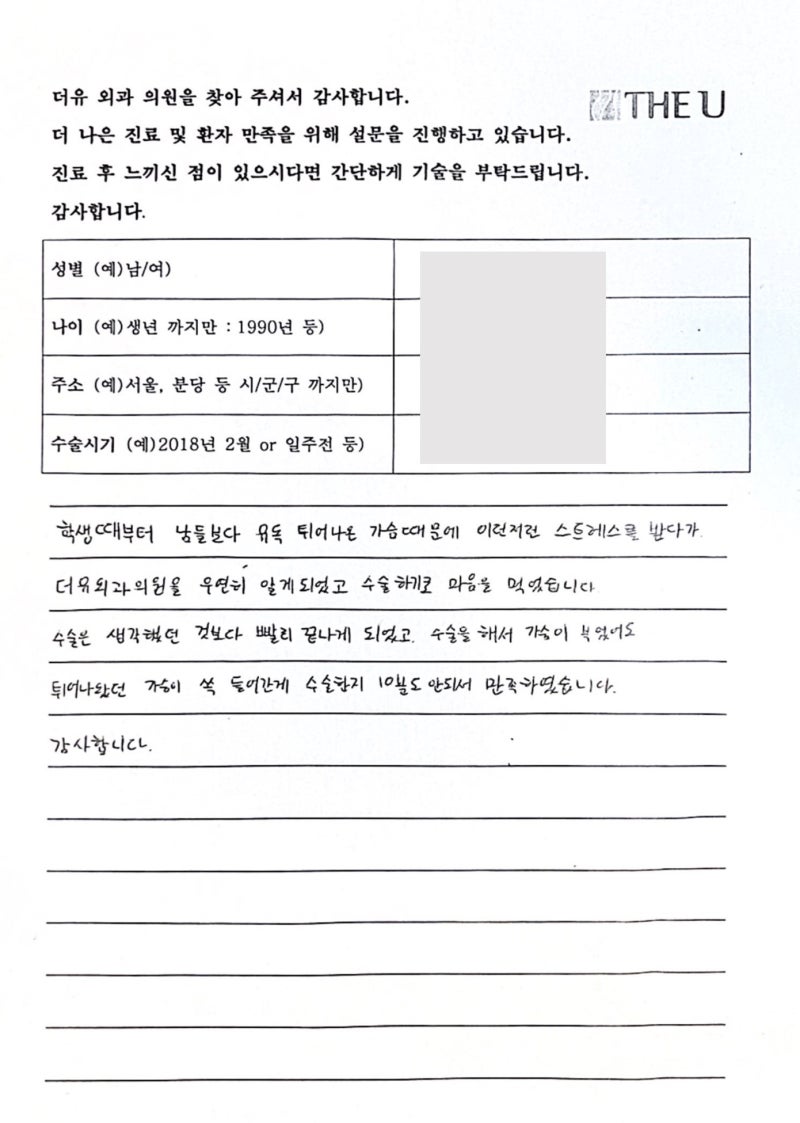 더유 외과 의원을 찾아 주셔서 감사합니다.
THE U
더 나은 진료 및 환자 만족을 위해 설문을 진행하고 있습니다.
진료 후 느끼신 점이 있으시다면 간단하게 기술을 부탁드립니다.
감사합니다.
성별 (예)남/여)
나이 (예)생년 까지만 : 1990년 등)
주소 (예)서울, 분당 등 시/군/구 까지만)
수술시기 (예)2018년 2월 or 일주전 등)
학생때부터 남들보다 유독 튀어나온 가슴때문에 이런저런 스트레스를 받다가
더유외과의원을 우연히 알게되었고 수술하기로 마음을 먹었습니다
수술은 생각했던 것보다 빨리 끝나게 되었고. 수술을 해서 가슴이 부었어도
튀어나왔던 가슴이 쏙 들어간게 수술한지 10일도 안되서 만족하였습니다.
감사합니다.